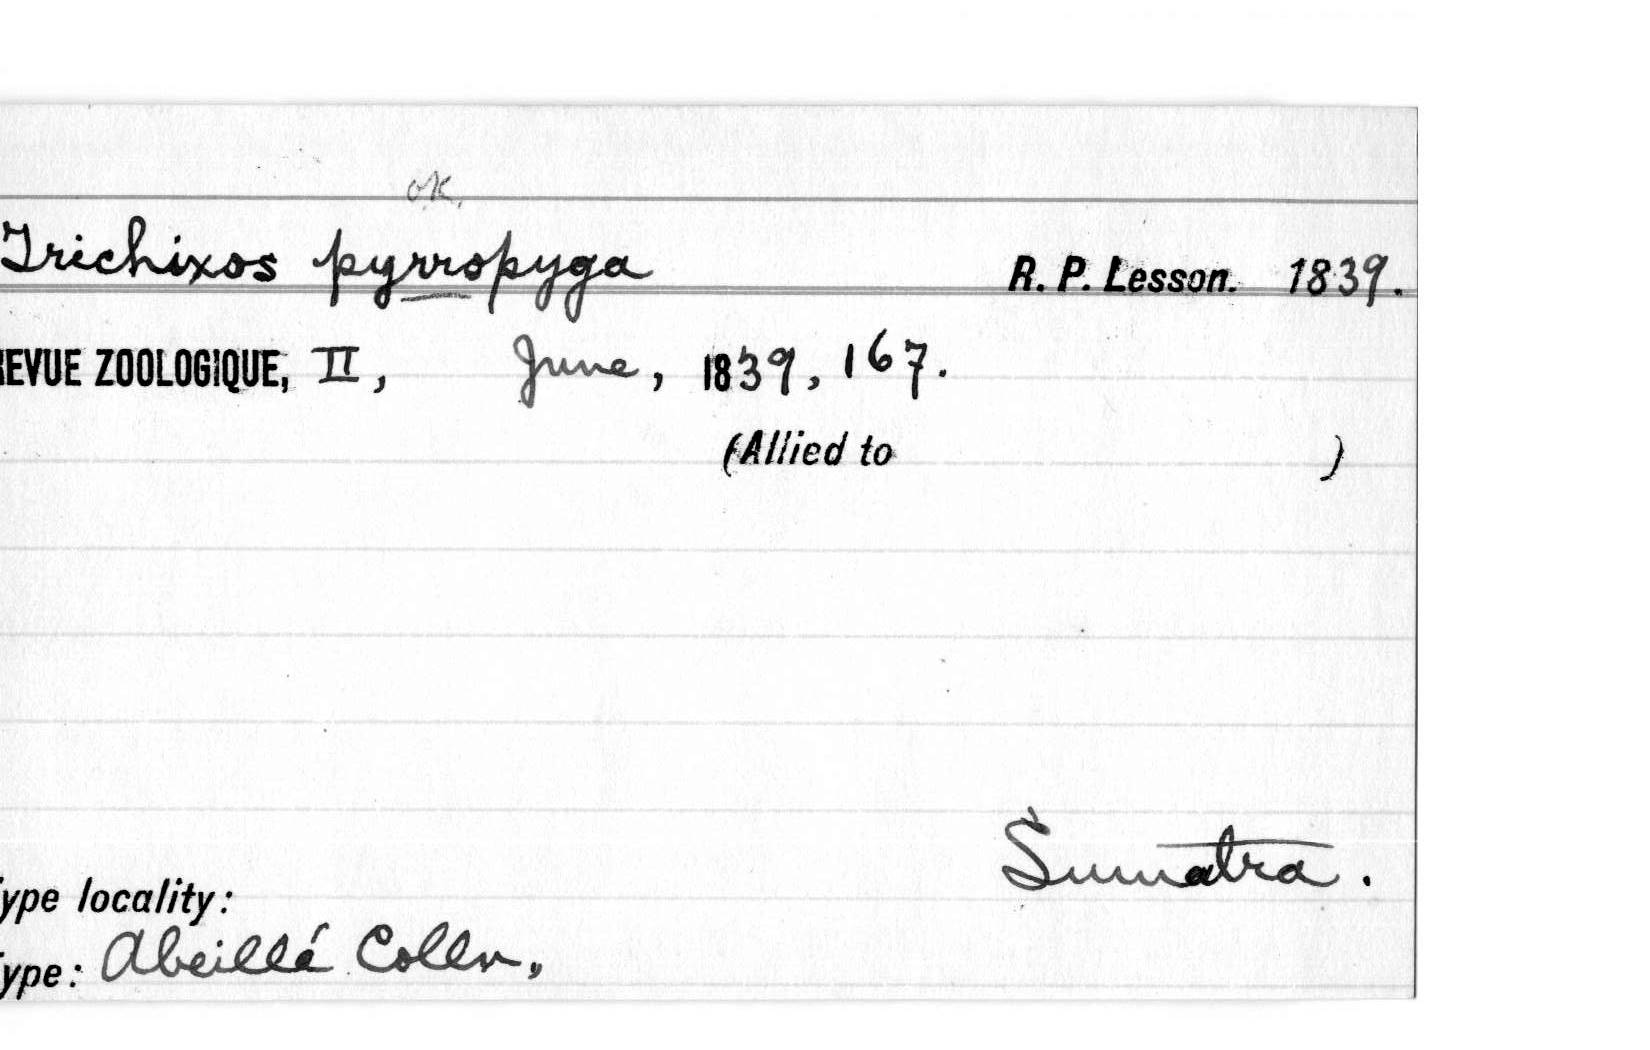 OK.
Trichixos pyrropyga R. P. Lesson. 1839.
REVUE ZOOLOGIQUE, II, June, 1839, 167.
(Allied to )
Sumatra.
ype locality:
ype: Abeillé Colln,